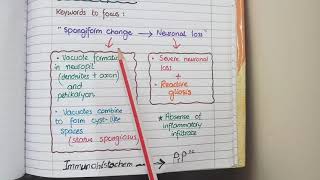 Keywords to focus :
"Spongiform change → Neuronal loss
• Vacuole formati
in neuropil
(dendrites + axon)
and
perikaryon
• Vacuoles combine
to form cyst-like
spaces
(status spongiosus)
• Severe neuronal
loss
+
• Reactive
gliosis
* Absence of
inflammatory
infiltrate
Immunohistochem